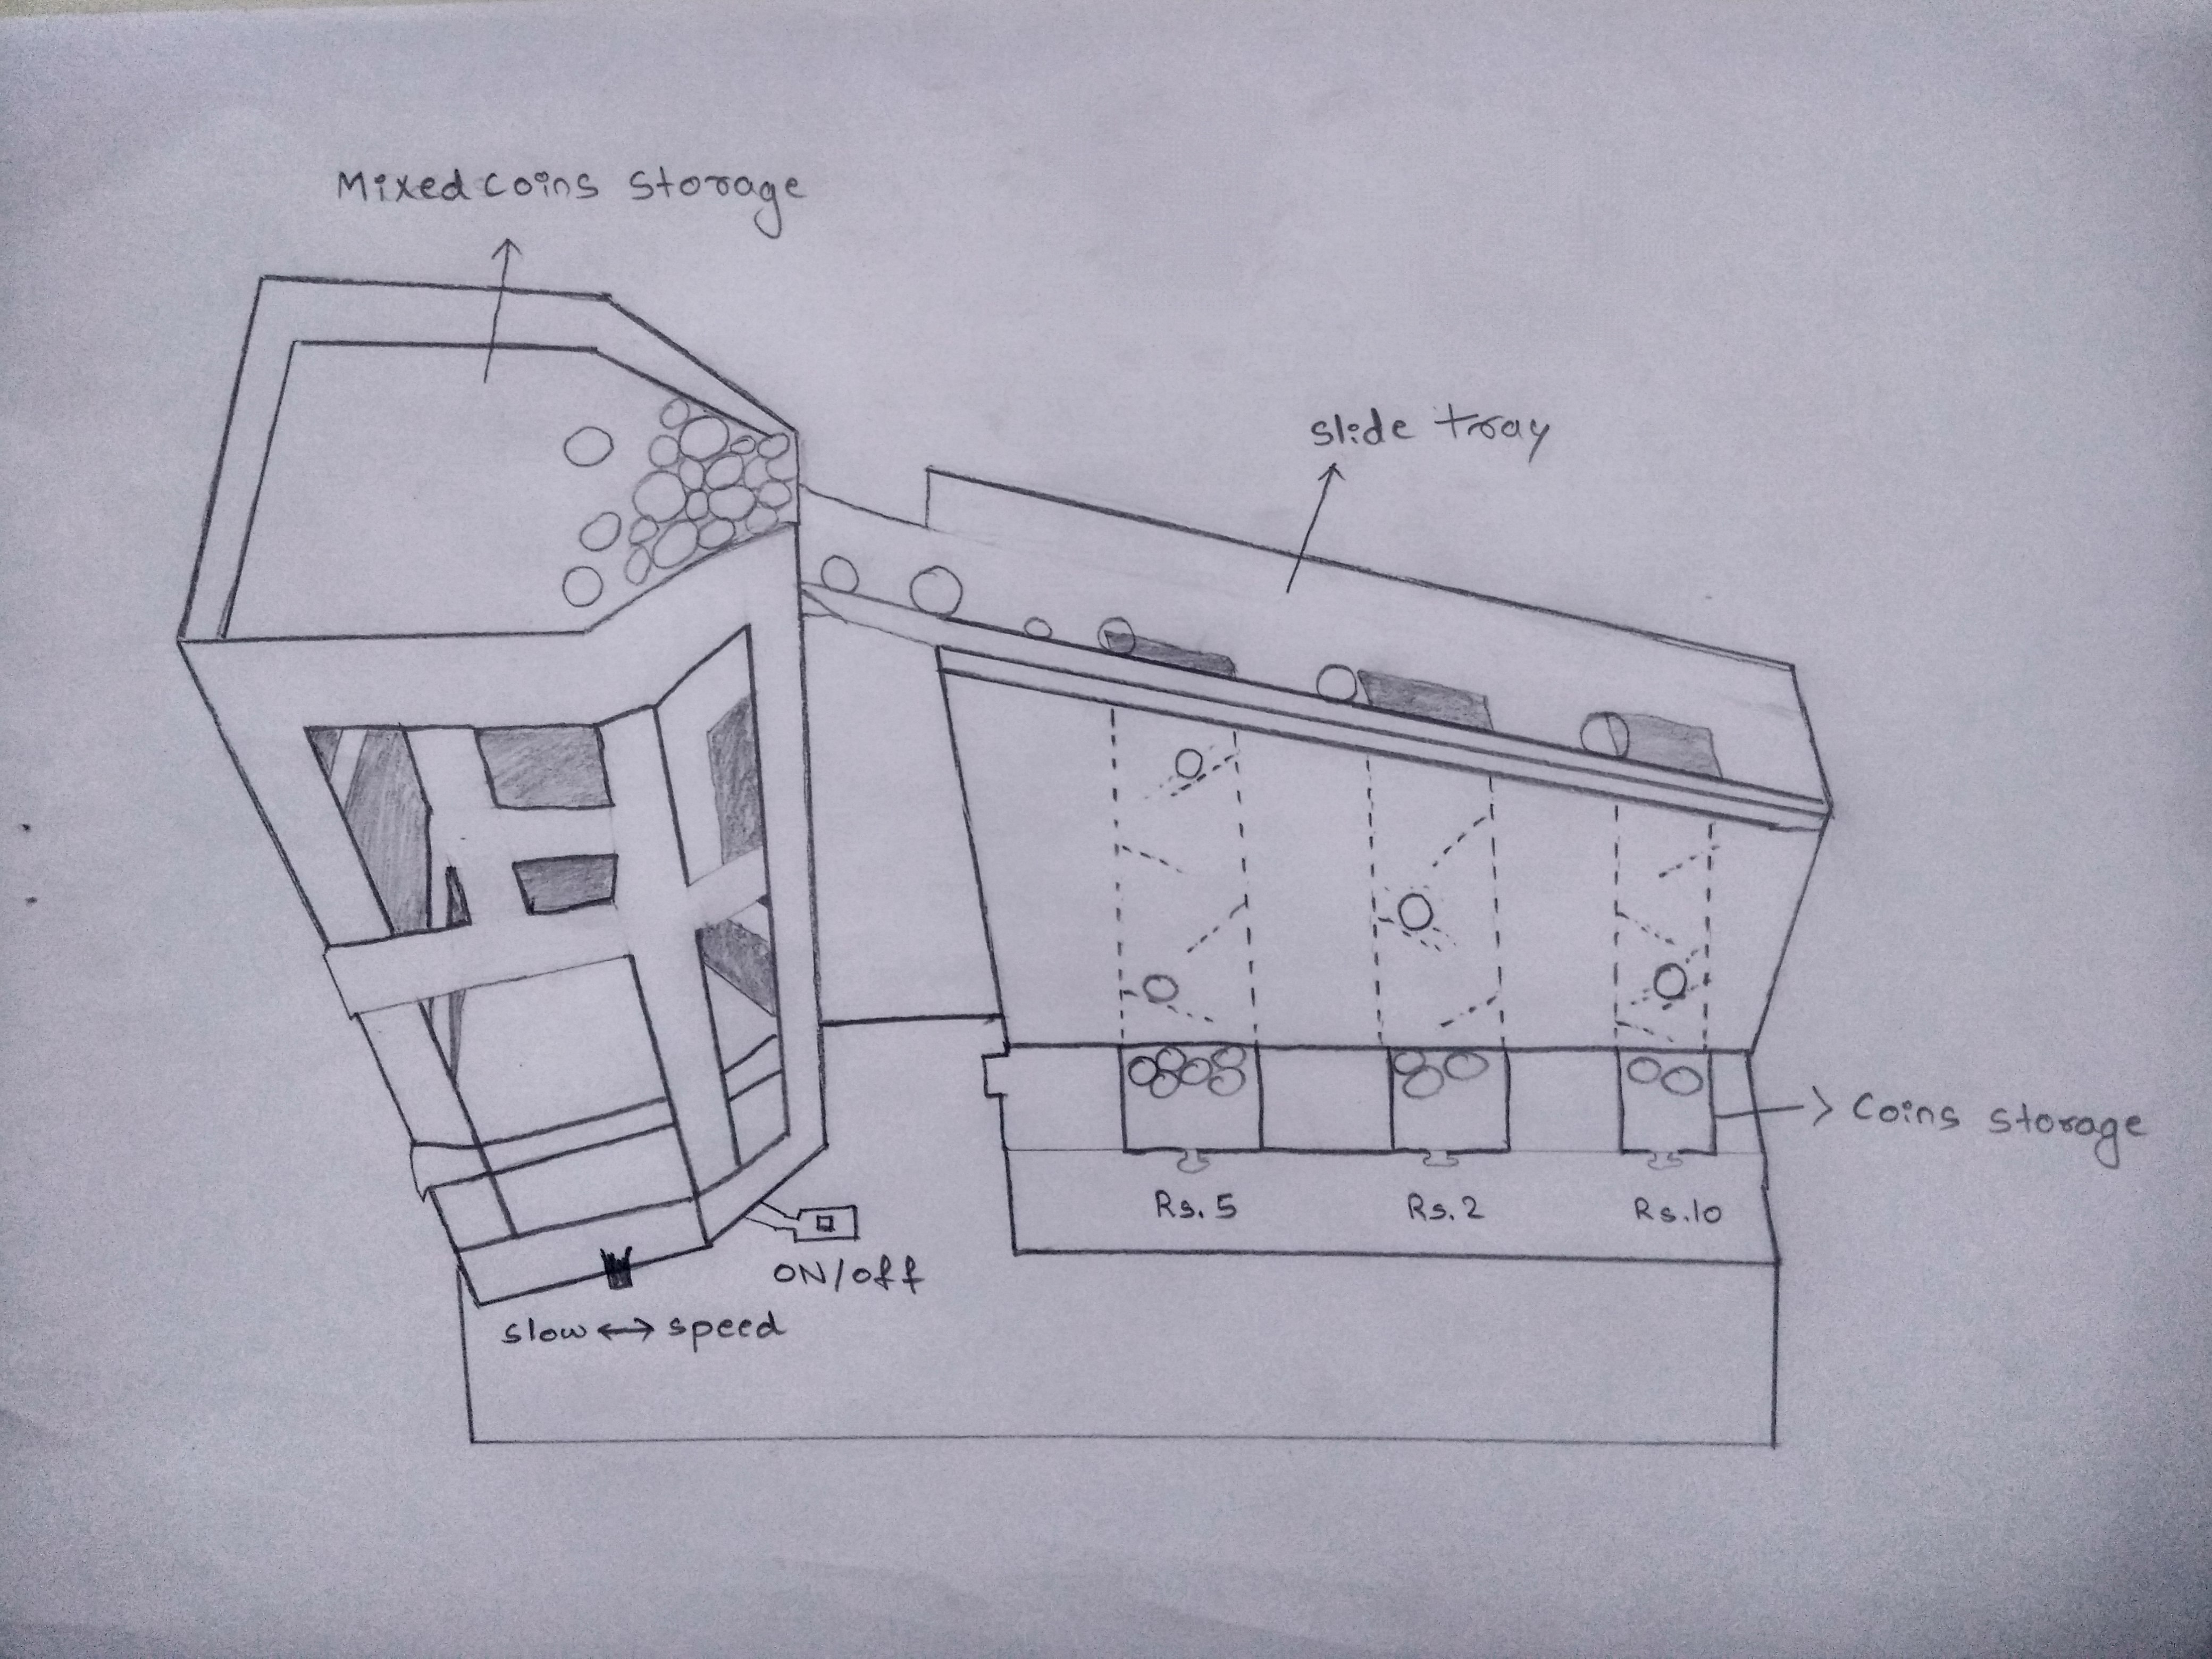 Mixed coins storage
slide tray
Coins storage
Rs. 5
Rs. 2
Rs. 10
ON/off
slow ↔ speed